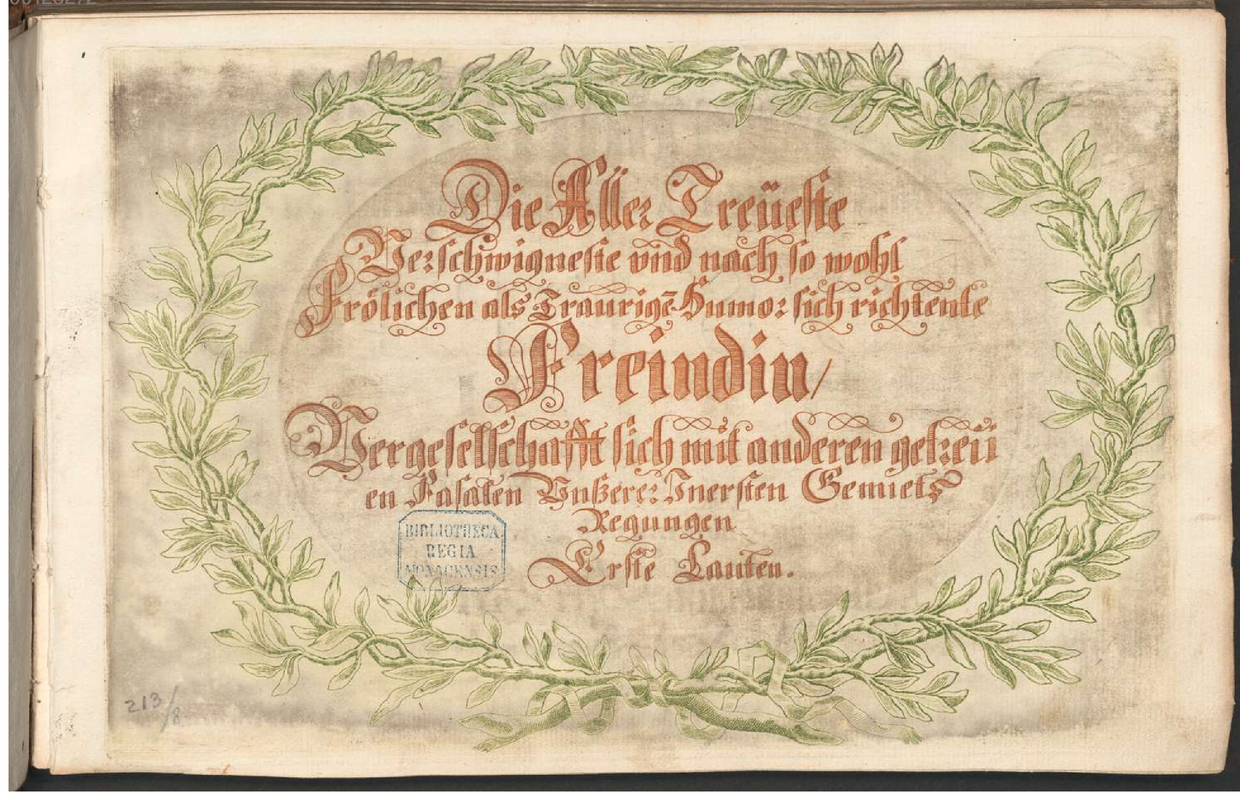 Die Aller Treüeste
Verschwigneste vnd nach so wohl
Frölichen als Traurigē Humor sich richtente
Freindin/
Vergesellschafft sich mit anderen getreü
en Fasalen Vnßerer Inersten Gemiets
Regungen
Erste Lauten.
BIBLIOTHECA
REGIA
MONACENSIS
213/8